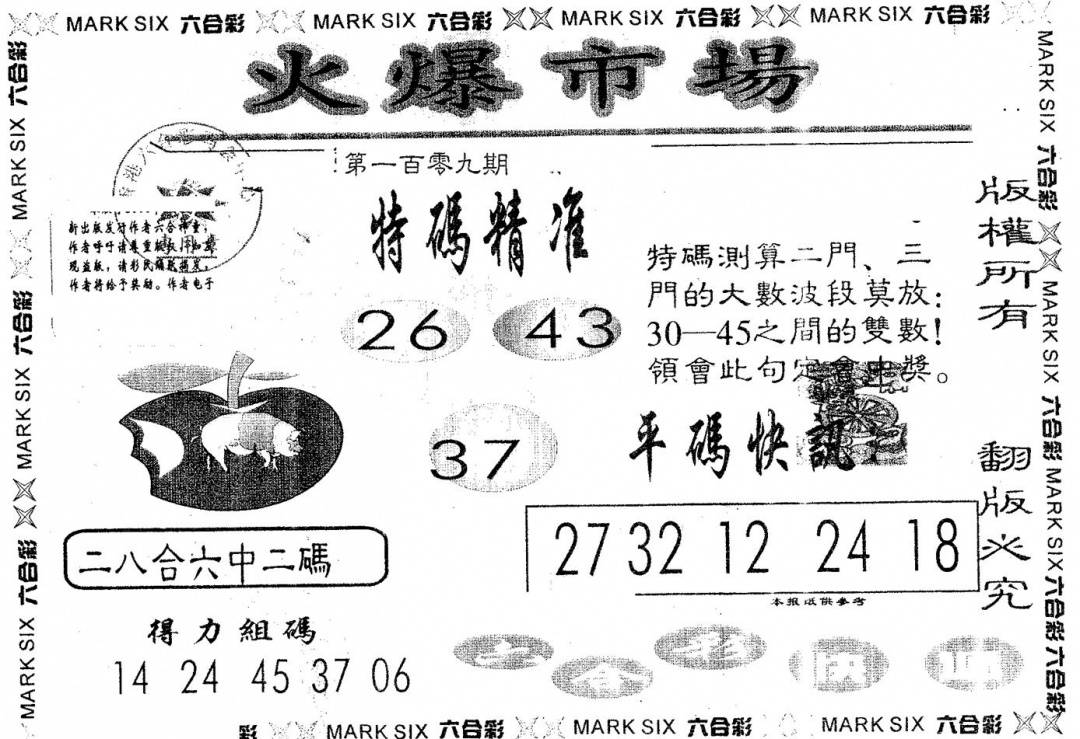 MARK SIX 六合彩 MARK SIX 六合彩 MARK SIX 六合彩 MARK SIX 六合彩
火爆市場
第一百零九期
特碼精准
新出版发行作者六合神童，
作者呼吁请尊重版权，如发
现盗版，请彩民踊跃揭发，
作者将给予奖励。作者电子
26 43
37
特碼測算二門、三
門的大數波段莫放：
30—45之間的雙數！
領會此句定會中獎。
平碼快訊：
27 32 12 24 18
本报仅供参考
二八合六中二碼
得力組碼
14 24 45 37 06
版權所有
翻版必究
MARK SIX 六合彩 MARK SIX 六合彩 MARK SIX 六合彩
MARK SIX 六合彩 MARK SIX 六合彩 MARK SIX 六合彩 六合彩
彩 MARK SIX 六合彩 MARK SIX 六合彩 MARK SIX 六合彩